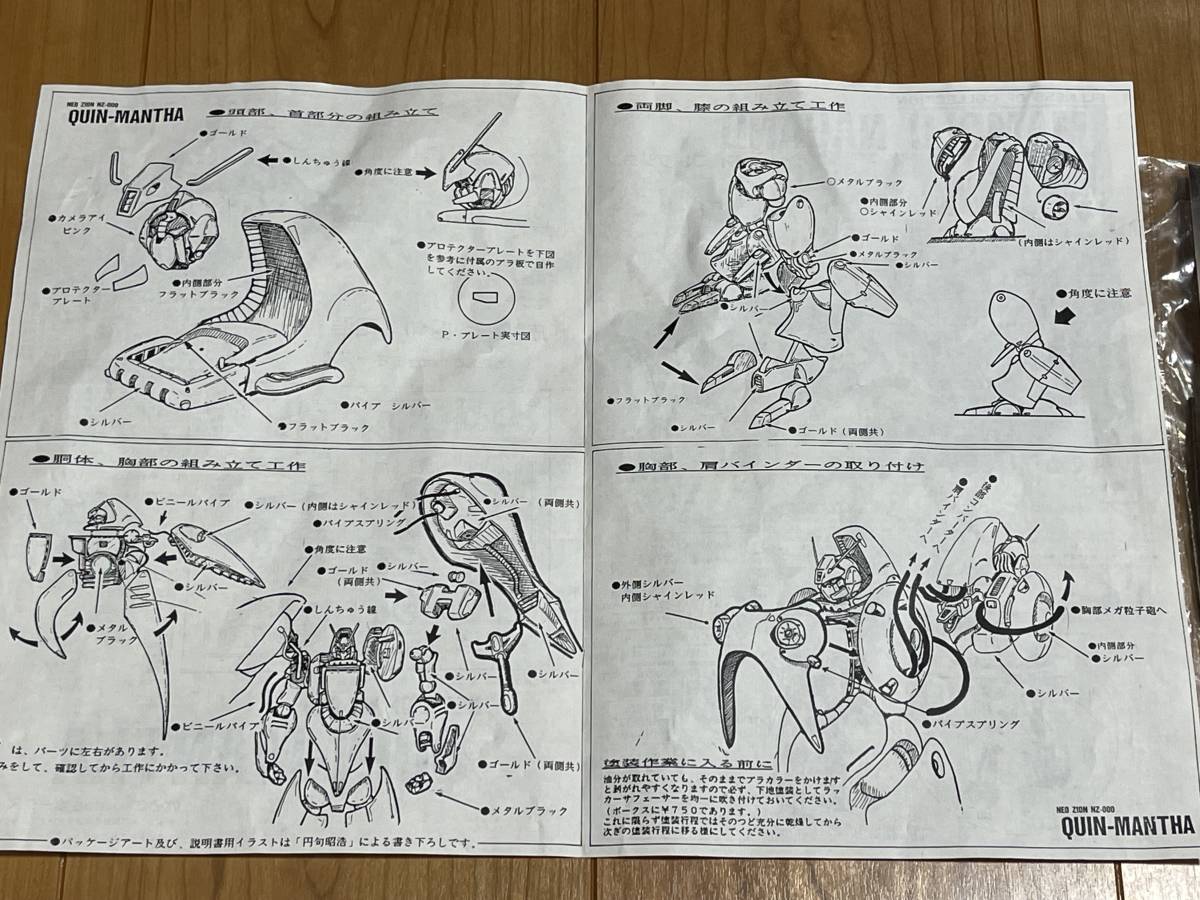 NEO ZION NZ-000
QUIN-MANTHA
●頭部、首部分の組み立て
●ゴールド
●しんちゅう線
●角度に注意
●カメラアイ
ピンク
●プロテクター
プレート
●内側部分
フラットブラック
●プロテクタープレートを下図
を参考に付属のプラ板で自作
してください。
P・プレート実寸図
●パイプ シルバー
●シルバー
●フラットブラック
●両脚、膝の組み立て工作
○メタルブラック
●内側部分
○シャインレッド
(内側はシャインレッド)
●ゴールド
●メタルブラック
●シルバー
●シルバー
●角度に注意
●フラットブラック
●シルバー
●ゴールド(両側共)
●胴体、胸部の組み立て工作
●ゴールド
●ビニールパイプ
●シルバー(内側はシャインレッド)
●シルバー(両側共)
●パイプスプリング
●角度に注意
●シルバー
●ゴールド
(両側共)
●シルバー
●しんちゅう線
●メタル
ブラック
●シルバー
●シルバー
●シルバー
●ビニールパイプ
●シルバー
●ゴールド(両側共)
●メタルブラック
は、パーツに左右があります。
みをして、確認してから工作にかかって下さい。
●パッケージアート及び、説明書用イラストは「円句昭浩」による書き下ろしです。
●胸部、肩バインダーの取り付け
●肩バインダーへ
●外側シルバー
内側シャインレッド
●胸部メガ粒子砲へ
●内側部分
●シルバー
●シルバー
●パイプスプリング
塗装作業に入る前に
油分が取れていても、そのままでプラカラーをかけます
と剥がれやすくなりますので必ず、下地塗装としてラッ
カーサフェーサーを均一に吹き付けておいてください。
(ボークスに¥750であります。)
これに限らず塗装行程ではそのつど充分に乾燥してから
次ぎの塗装行程に移る様にしてください。
NEO ZION NZ-000
QUIN-MANTHA